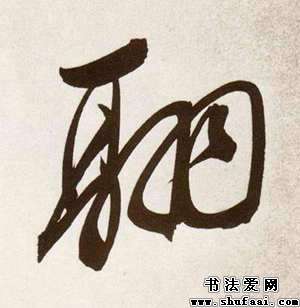 翮
书法爱网
www.shufaai.com